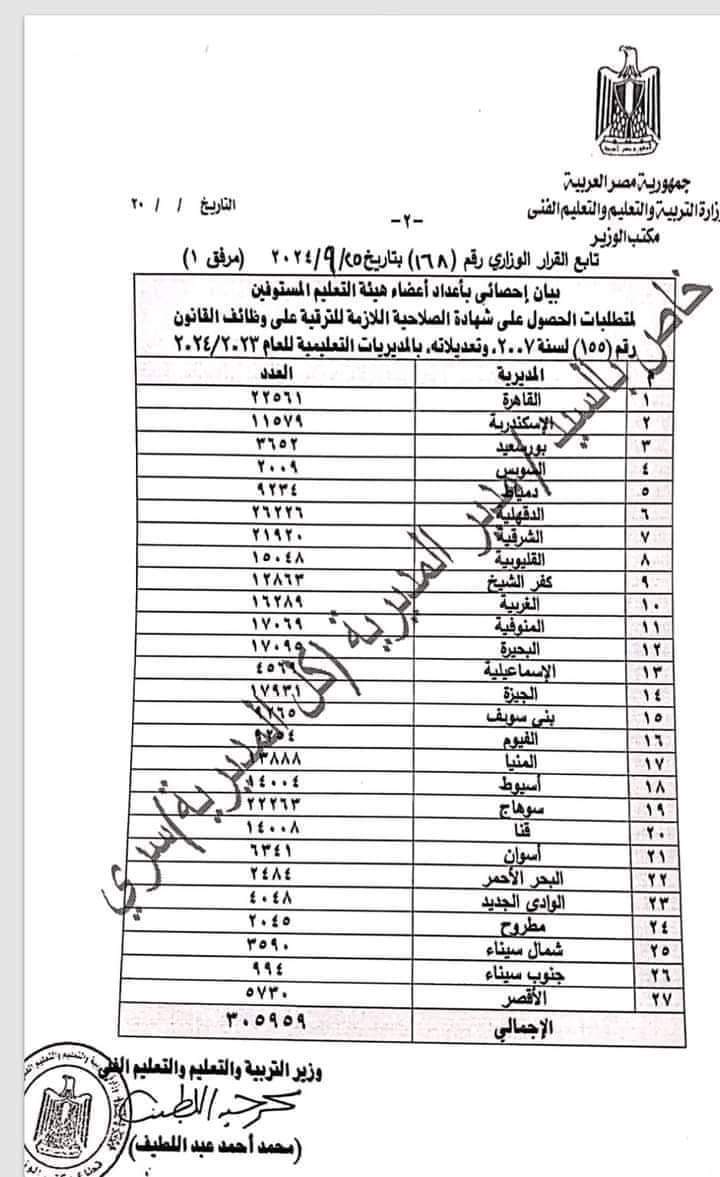 جمهورية مصر العربية
وزارة التربية والتعليم والتعليم الفنى
مكتب الوزير
التاريخ / / ٢٠
-٢-
تابع القرار الوزاري رقم (١٦٨) بتاريخ ٢٠٢٤/٩/٢٥ (مرفق ١)
بيان إحصائي بأعداد أعضاء هيئة التعليم المستوفين
لمتطلبات الحصول على شهادة الصلاحية اللازمة للترقية على وظائف القانون
رقم (١٥٥) لسنة ٢٠٠٧، وتعديلاته، بالمديريات التعليمية للعام ٢٠٢٤/٢٠٢٣
م المديرية العدد
١ القاهرة ٢٢٥٦١
٢ الإسكندرية ١١٥٧٩
٣ بورسعيد ٣٦٥٢
٤ السويس ٢٠٠٩
٥ دمياط ٩٢٣٤
٦ الدقهلية ٢٦٢٢٦
٧ الشرقية ٢١٩٢٠
٨ القليوبية ١٥٠٤٨
٩ كفر الشيخ ١٢٨٦٣
١٠ الغربية ١٦٢٨٩
١١ المنوفية ١٧٠٦٩
١٢ البحيرة ١٧٠٩٥
١٣ الإسماعيلية ٤٥٦٩
١٤ الجيزة ١٧٩٣١
١٥ بنى سويف ٩٢٦٥
١٦ الفيوم ٩٢٥٤
١٧ المنيا ١٣٨٨٨
١٨ أسيوط ١٤٠٠٤
١٩ سوهاج ٢٢٢٦٣
٢٠ قنا ١٤٠٠٨
٢١ أسوان ٦٣٤١
٢٢ البحر الأحمر ٢٤٨٤
٢٣ الوادى الجديد ٤٠٤٨
٢٤ مطروح ٢٠٤٥
٢٥ شمال سيناء ٣٥٩٠
٢٦ جنوب سيناء ٩٩٤
٢٧ الأقصر ٥٧٣٠
الإجمالي ٣٠٥٩٥٩
خاص بالسيد/مدير المديرية (كل المديرية/سري
وزير التربية والتعليم والتعليم الفنى
(محمد أحمد عبد اللطيف)